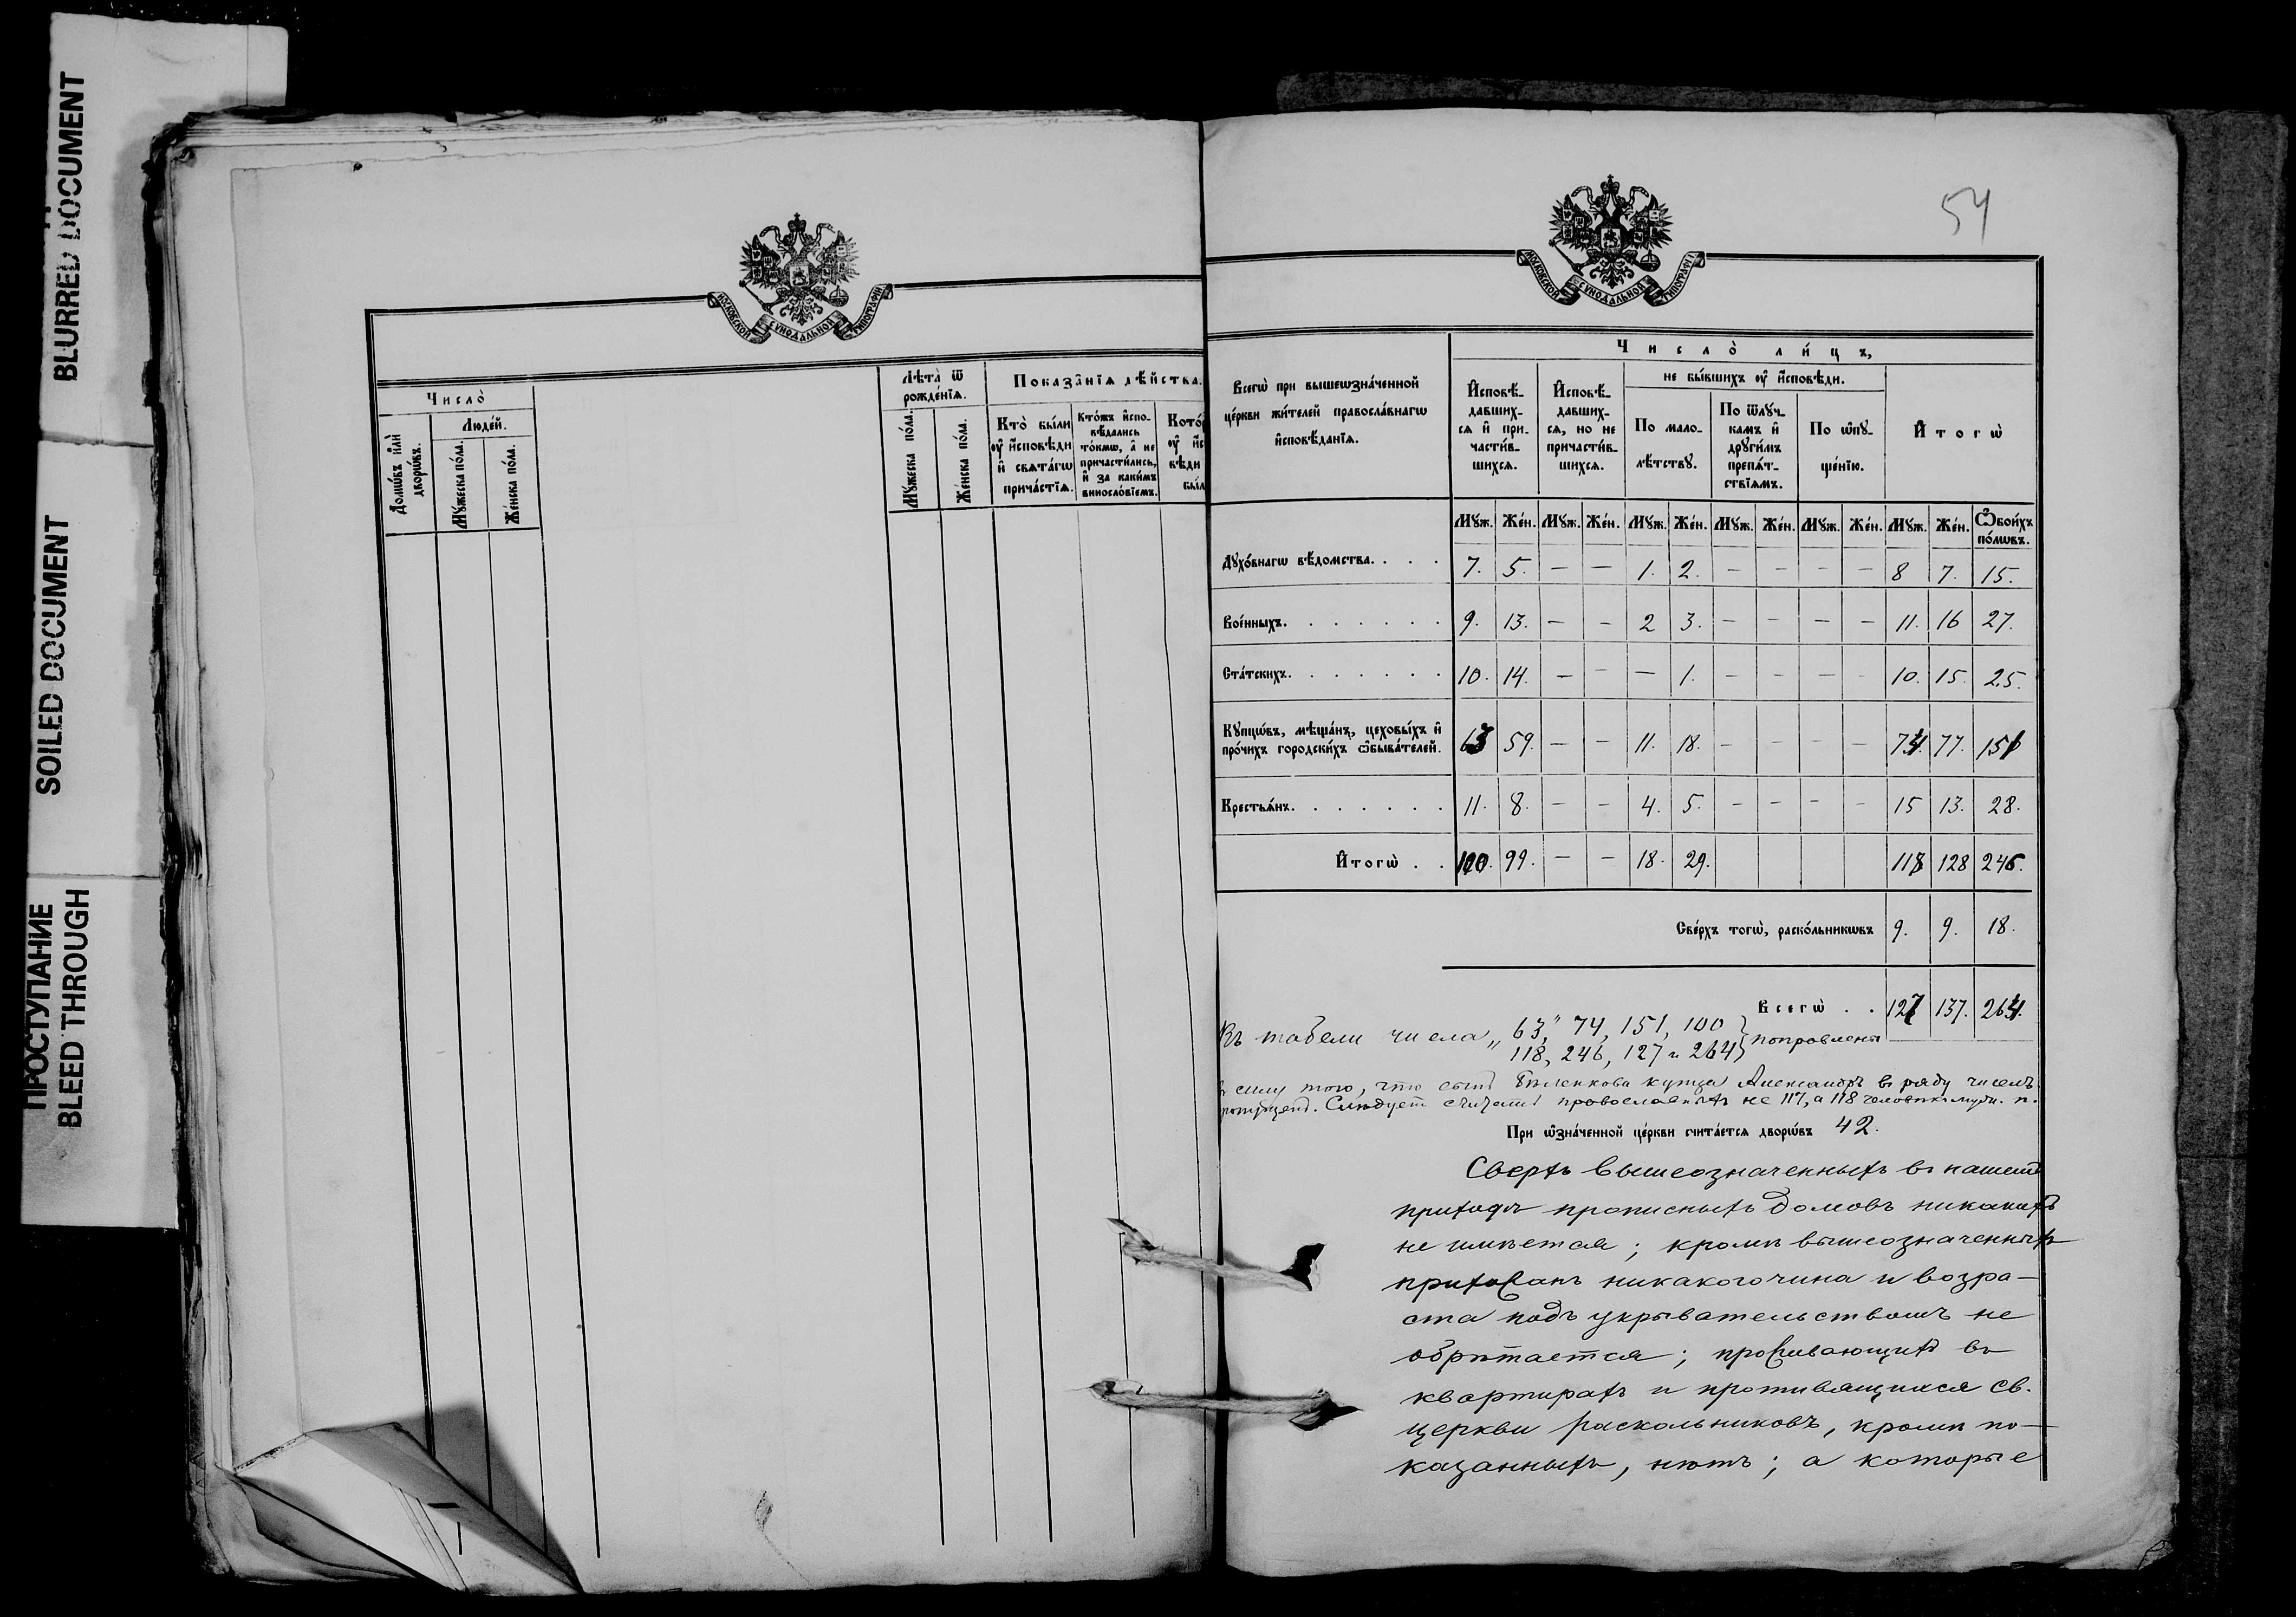 BLURRED DOCUMENT
SOILED DOCUMENT
ПРОСТУПАНИЕ
BLEED THROUGH
МОСКОВСКОЙ СѴНОДАЛЬНОЙ ТИПОГРАФІИ
Число̀
Людей.
Домѡ́въ и҆лѝ дворѡ́въ.
Мꙋ́жеска по́ла.
Же́нска по́ла.
Лѣта̀ ѿ рожде́нїѧ.
Мꙋ́жеска по́ла.
Же́нска по́ла.
Показа̑нїѧ дѣ́йства.
Кто̀ бы́ли
ᲂу҆ и҆сповѣди
и҆ свѧта́гѡ
прича́стїѧ.
Кто́жъ и҆спо-
вѣ́дались
то́кмѡ, а҆ не
причасти́лись,
и҆ за каки́мъ
винословїемъ.
54
МОСКОВСКОЙ СѴНОДАЛЬНОЙ ТИПОГРАФІИ
Всегѡ̀ при вышеѡзна́ченной
це́ркви жи́телей правосла́внагѡ
и҆сповѣ́данїѧ.
Число̀ ли́цъ,
И҆сповѣ-
давших-
сѧ и҆ при-
части́в-
шихсѧ.
И҆сповѣ-
давших-
сѧ, но не
причасти́в-
шихсѧ.
не бы́вшихъ ᲂу҆ и҆сповѣди.
По мало-
лѣ́тствꙋ.
По ѿлꙋч-
камъ и҆
дрꙋги́мъ
препѧ́т-
ствїѧмъ.
По ѡ҆пꙋ-
ще́нїю.
И҆тогѡ̀
Мꙋж. Же́н. Мꙋж. Же́н. Мꙋж. Же́н. Мꙋж. Же́н. Мꙋж. Же́н. Мꙋж. Же́н. Ѻ҆бои́хъ по́лѡвъ.
Дꙋхо́внагѡ вѣ́домства. . . . 7. 5. — — 1. 2. — — — — 8 7. 15.
Вое́нныхъ. . . . . . . 9. 13. — — 2 3. — — — — 11. 16 27.
Ста́тскихъ. . . . . . . 10. 14. — — — 1. — — — - 10. 15. 25.
Кꙋпцѡ́въ, мѣща́нъ, цеховы́хъ и҆
про́чихъ городски́хъ ѡ҆быва́телей. 63 59. — — 11. 18. — — — — 74. 77. 151
Крестьѧ́нъ. . . . . . . 11. 8. — — 4. 5. — — — — 15 13. 28.
И҆тогѡ̀ . . 100. 99. — — 18. 29. 118 128 246.
Све́рхъ тогѡ̀, раско́льникѡвъ 9. 9. 18.
Всегѡ̀ . . 127 137. 264.
Въ табели числа „63,” 74, 151, 100
118, 246, 127 и 264 поправлены
въ силу того, что сынъ купца Александръ въ ряду чиселъ
пропущенъ. Слѣдуетъ считать православныхъ не 117, а 118 человѣкъ муж. п.
При ѡ҆зна́ченной це́ркви счита́етсѧ дворѡ́въ 42.
Сверхъ вышеозначенныхъ въ нашемъ
приходѣ прописныхъ домовъ никакихъ
не имѣется; кромѣ вышеозначенныхъ
прихожанъ никакого чина и возра-
ста подъ укрывательствомъ не
обрѣтается; проживающихъ въ
квартирахъ и противящихся св.
церкви раскольниковъ, кромѣ по-
казанныхъ, нѣтъ; а которые